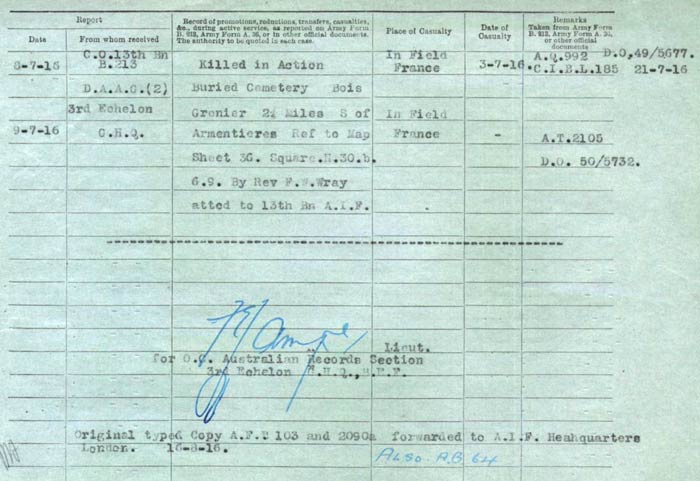 Report
Record of promotions, reductions, transfers, casualties,
&c., during active service, as reported on Army Form
B. 213, Army Form A. 36, or in other official documents.
The authority to be quoted in each case.
Place of Casualty
Date of
Casualty
Remarks
Taken from Army Form
B. 213, Army Form A. 36,
or other official
documents
Date
From whom received
C.O.13th Bn In Field A.Q.992 D.O,49/5677.
8-7-16 B.213 Killed in Action France 3-7-16. C.I.B.L.185 21-7-16
D.A.A.G.(2) Buried Cemetery Bois
3rd Echelon Grenier 2½ Miles S of In Field
9-7-16 G.H.Q. Armentieres Ref to Map France - A.T.2105
Sheet 36. Square.H.30.b. D.O. 50/5732.
6.9. By Rev F.W.Wray
atted to 13th Bn A.I.F.
Lieut.
for O.C. Australian Records Section
3rd Echelon G.H.Q.,M.E.F.
Original typed Copy A.F.B 103 and 2090a forwarded to A.I.F. Heahquarters
London. 16-8-16.
ALSO. A.B 64